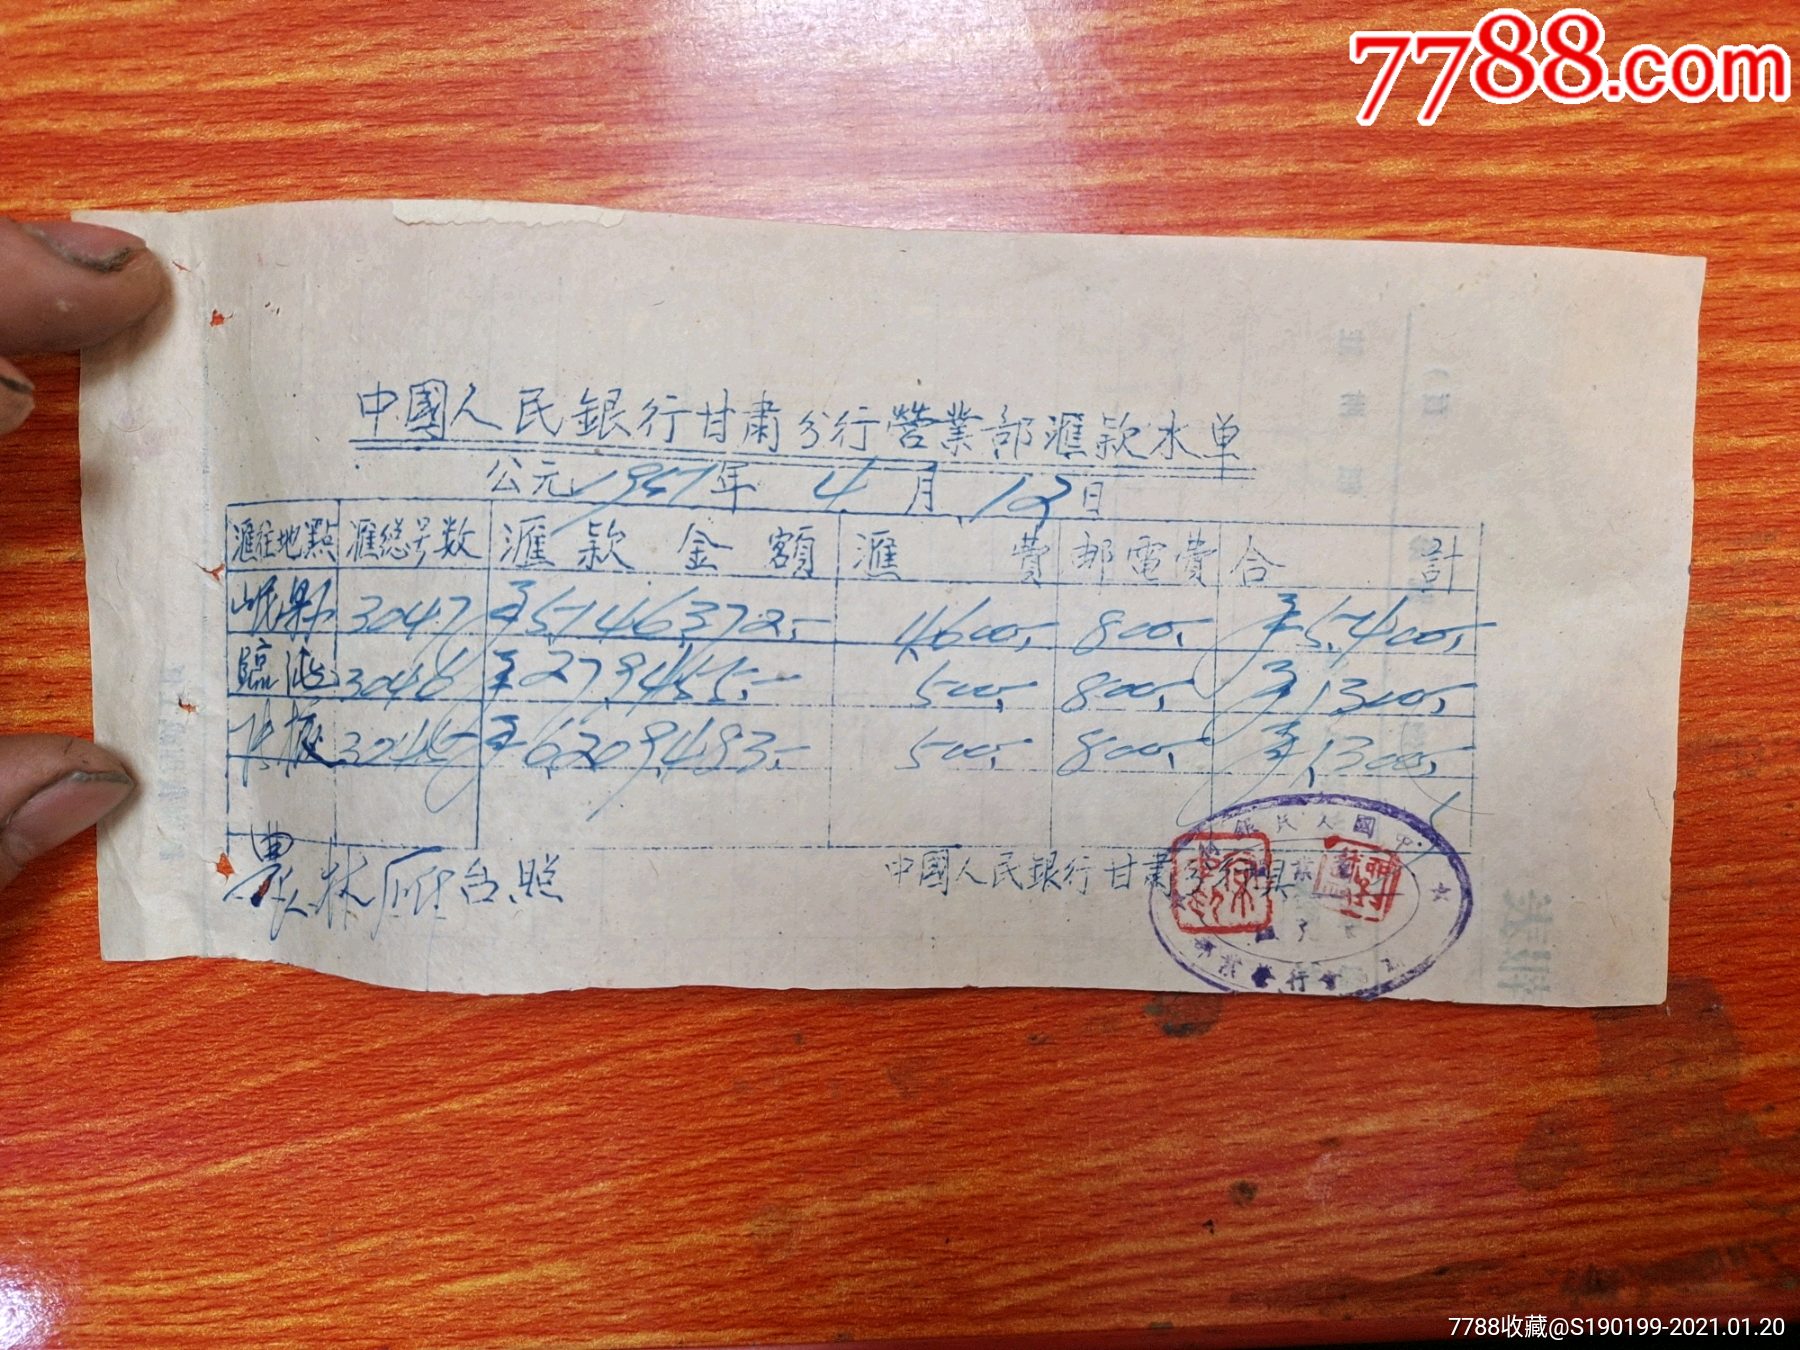 7788.com
中國人民銀行甘肅分行營業部滙欵水单
公元1951年 4月12日
滙往地點 滙総号数 滙欵金額 滙費 邮電費 合計
岷縣 3047 5,146,372.- 4,600.- 800.- 5,400.-
臨洮 3048 279,455.- 500.- 800.- 1,300.-
張掖 3045 6,209,483.- 500.- 800.- 1,300.-
農林廳台照
中國人民銀行甘肅分行具
7788收藏@S190199-2021.01.20